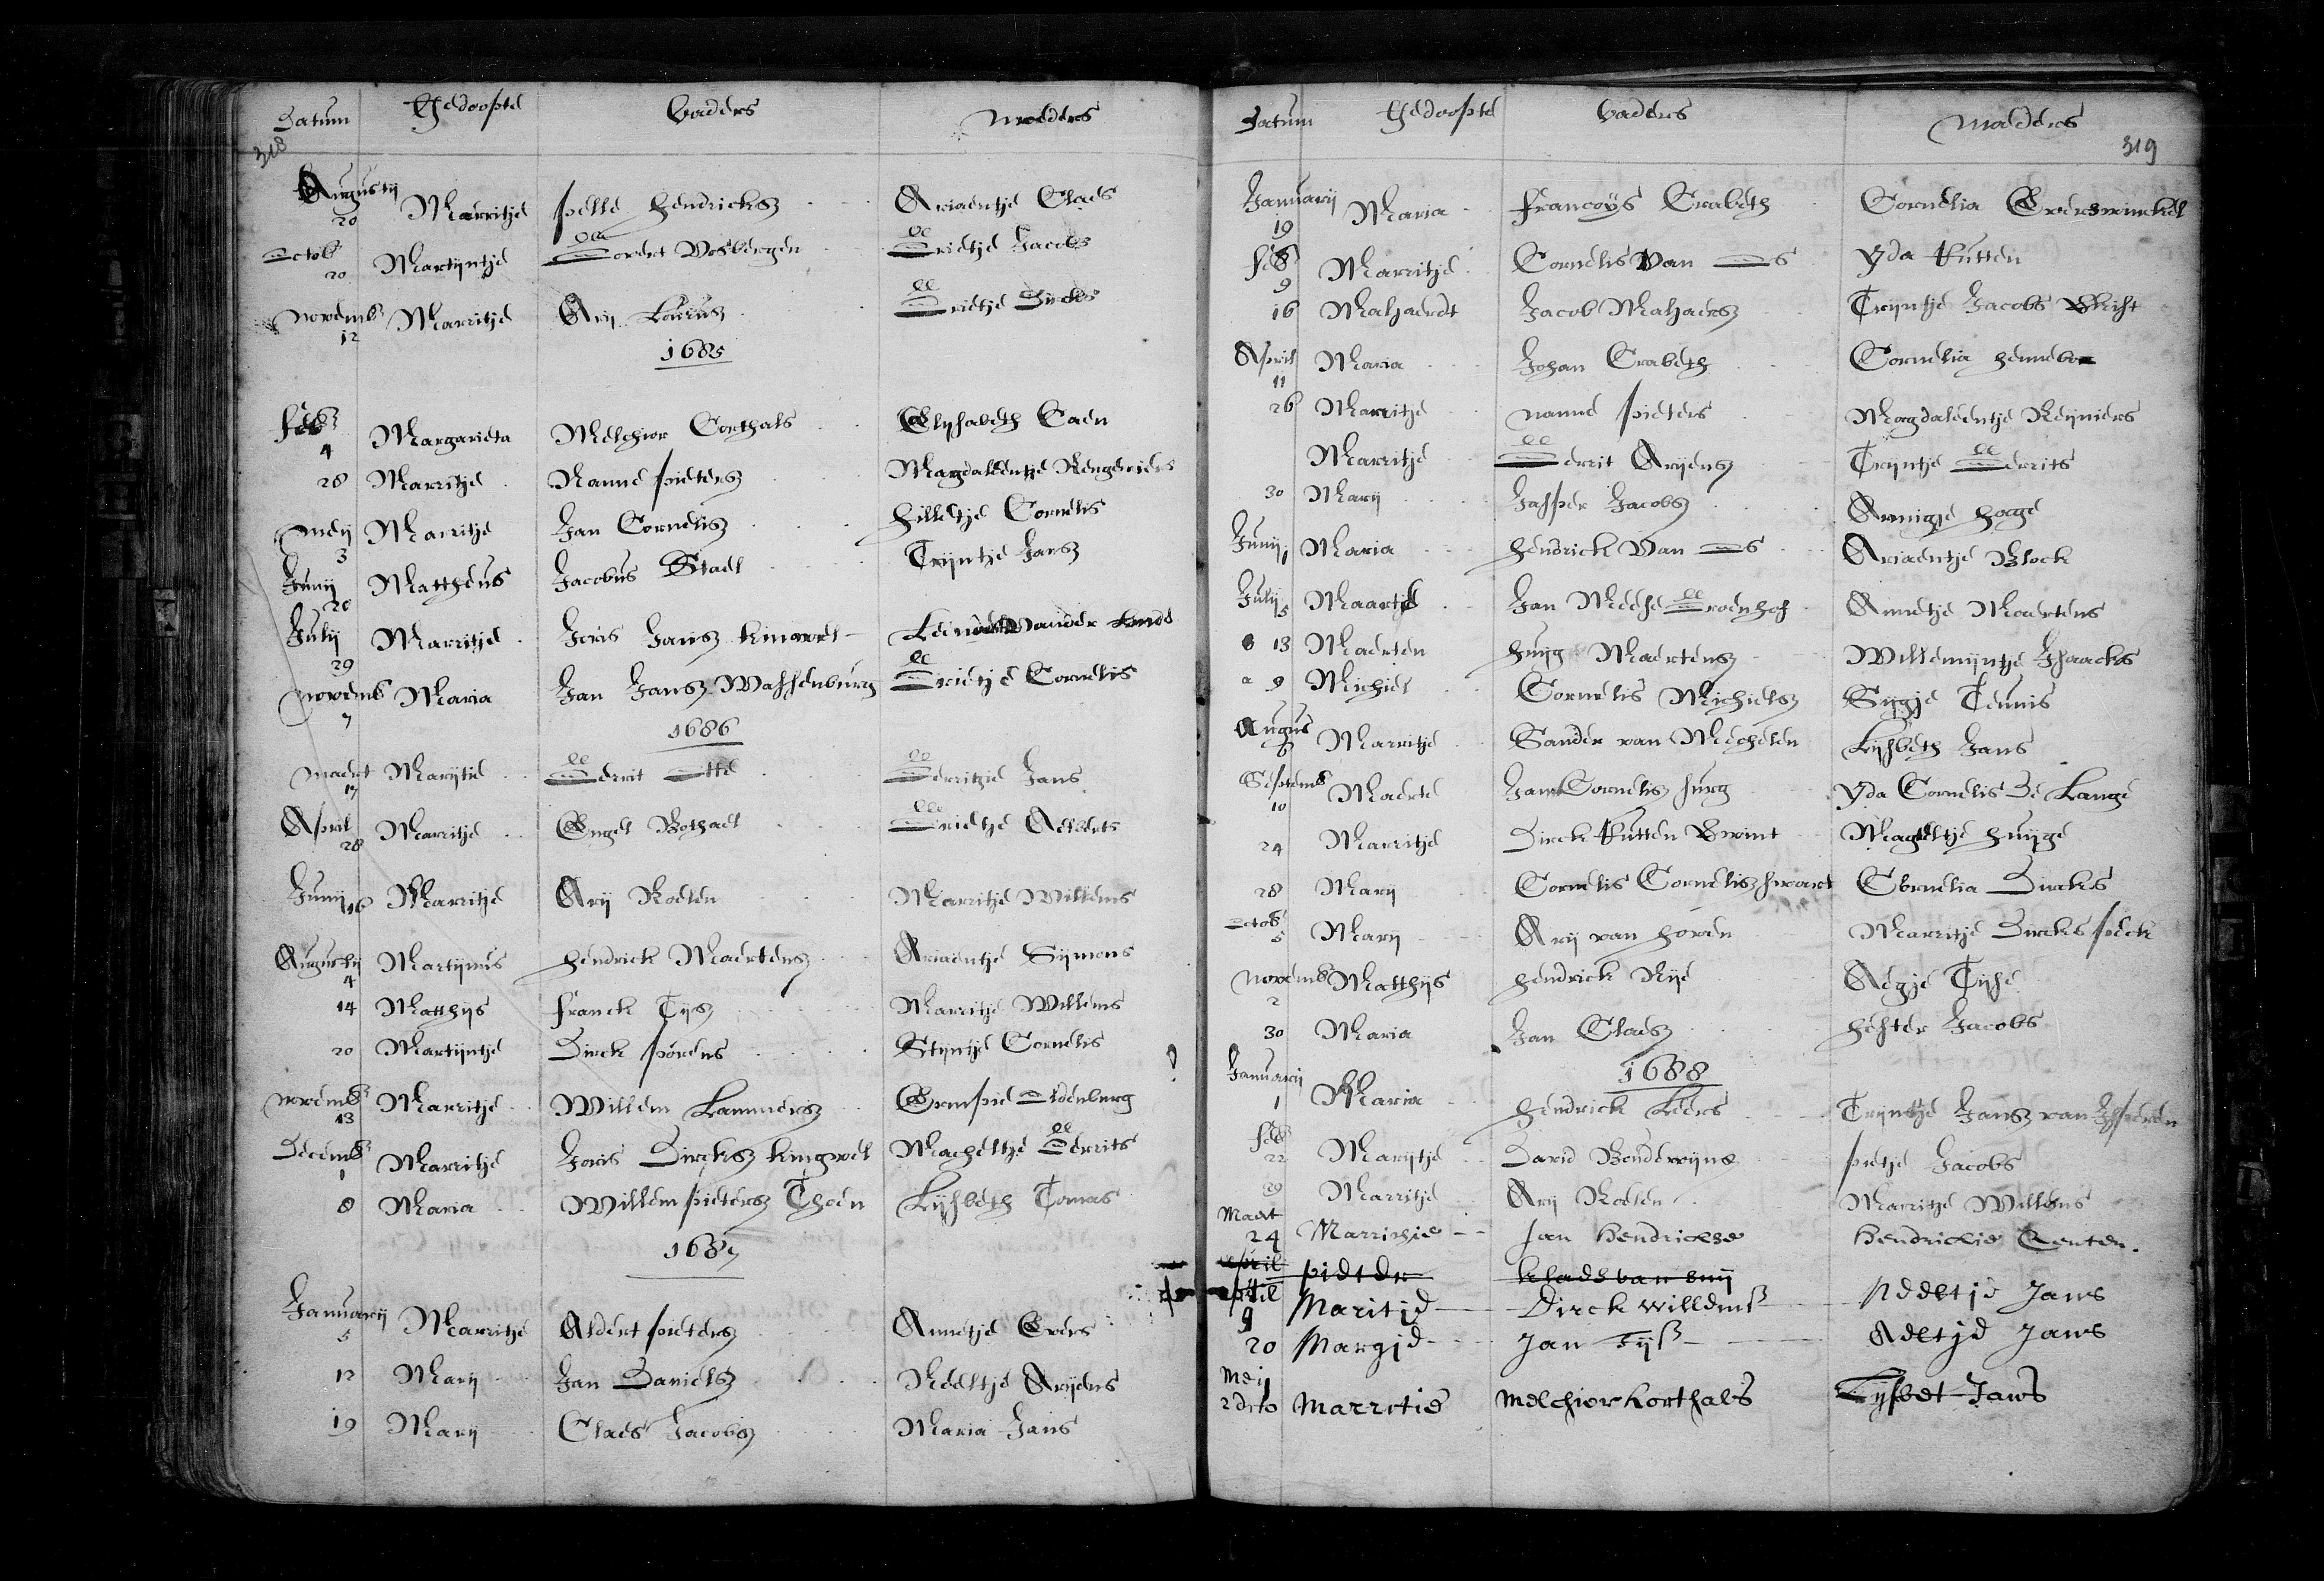 Datum Gedoopte Vaders Moeders
318
Augustij
20 Marritje pelle Hendricksz Ariaentje Claes
Octob
20 Martijntje Govert Vosbergen Grietje Jacobs
Novemb
12 Marritje Arij Louusz Grietje Dircks
1685
Feb
4 Margarieta Melchior Corthals Elysabeth Caen
28 Marritje Nanne pieters Magdaleentje
Meij
3 Marritje Jan Cornelisz Hilletje Cornelis
Junij
20 Mattheus Jacobus Stael Trijntje Jansz
Julij
29 Marritje Joris Jansz vander
Novemb
7 Maria Jan Jansz Wassenburg Grietje Cornelis
1686
Maert
17 Marijtie Gerrit Otte Gerritjie Jans
April
28 Marritje Engel Bothael Grietje Aelberts
Junij 16 Marritje Arij Roelen Marritje Willems
Augustij
4 Martijnus Hendrick Maertensz Ariaentje Sijmons
14 Matthijs Franck Tijsz Marritje Willems
20 Martijntje Dirck Stijntje Cornelis
Novemb
13 Marritje Willem Lammersz Oldenburg
Decemb
1 Marritje Joris Dircksz Kingwel Macheltje Gerrits
8 Maria Willem pietersz Thoen Lijsbeth Tomas
1687
Januarij
5 Marritje Aldert pietersz Annetje Evers
12 Marij Jan Danielsz Neeltje Arijens
19 Marij Claes Jacobsz Maria Jans
Datum Gedoopte Vaders Moeders
319
Januarij
19 Maria Francoys Crabeth Cornelia Everswinckel
Feb
9 Marritje Cornelis Van Os Yda Kutten
16 Mahaerdt Jacob Mahaersz Trijntje Jacobs
April
11 Maria Johan Crabeth Cornelia
26 Marritje Nanne pieters Magdaleentje Reyniers
Marritje Gerrit Arijensz Trijntje Gerrits
30 Marij Jasper Jacobsz Annigje
Junij 1 Maria Hendrick Van Os Ariaentje Block
Julij 5 Maartje Jan Meese Groenhof Annetje Maertens
13 Maerten Huijg Maertensz Willemijntje Isaacks
9 Michiel Cornelis Michielsz Sijgje Teunis
Augus
6 Marritje Sander van Mechelen Lijsbeth Jans
Septemb
10 Maerte Jan Cornelisz Yda Cornelis De Lange
24 Marritje Dirck Kutten Magteltje Huijge
28 Marij Cornelis Cornelisz Cornelia Dircks
Octob
5 Marij Arij van Marritje Dircks
Novemb
2 Matthijs Hendrick Rije Aegje Tijse
30 Maria Jan Claesz Hester Jacobs
1688
Januarij
1 Maria Hendrick Leers Trijntje Jansz van
Feb
22 Marijtje David Boudewijns pietje Jacobs
29 Marritje Arij Roelen Marritje Willems
Maert
24 Marrichie Jan Hendrickse Hendrickie
april pieter klaes van
april
9 Maritje Dirck willemsz Neeltje Jans
20 Margje Jan Tijsz Aeltje Jans
Meij
2 dito Marretie Melchior Korthals Lijsbet Jans